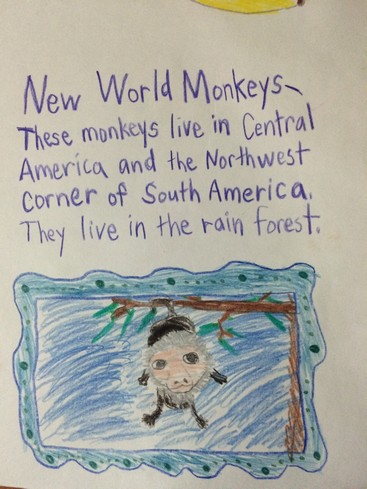 New World Monkeys~
These monkeys live in Central
America and the Northwest
corner of South America.
They live in the rain forest.